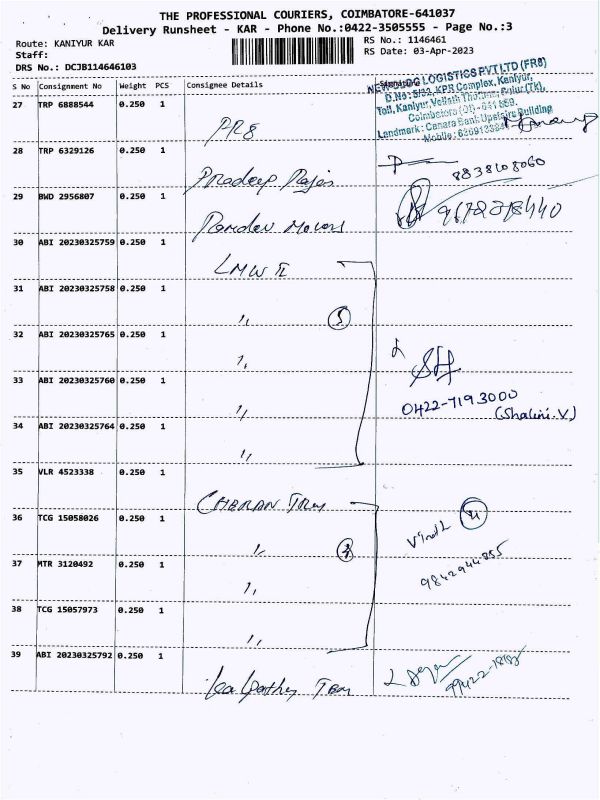 THE PROFESSIONAL COURIERS, COIMBATORE-641037
Delivery Runsheet - KAR - Phone No.:0422-3505555 - Page No.:3
Route: KANIYUR KAR
RS No.: 1146461
Staff:
RS Date: 03-Apr-2023
DRS No.: DCJB114646103
S No Consignment No Weight PCS Consignee Details
LOGISTICS PVT LTD (FR8)
D.No: 5/32, KPR Complex, Kaniyur,
Coimbatore
Landmark: Canara Bank Upstairs Building
Mobile:
27 TRP 6888544 0.250 1
PR8
28 TRP 6329126 0.250 1
8838108060
Pradeep
29 BWD 2956807 0.250 1
30 ABI 20230325759 0.250 1
LMW II
31 ABI 20230325758 0.250 1
〃 5
32 ABI 20230325765 0.250 1
〃
33 ABI 20230325760 0.250 1
0422-719 3000
〃 (Shalini.V)
34 ABI 20230325764 0.250 1
〃
35 VLR 4523338 0.250 1
CHERAN
36 TCG 15058026 0.250 1
〃 4
37 MTR 3120492 0.250 1
9842944855
〃
38 TCG 15057973 0.250 1
〃
39 ABI 20230325792 0.250 1